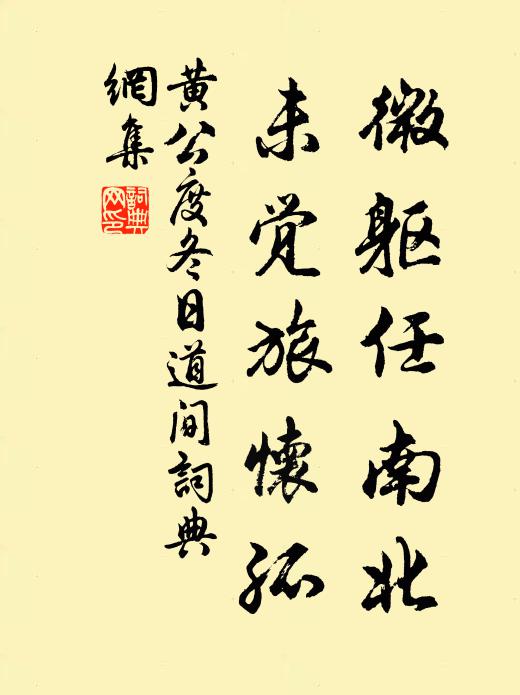 微躯任南北
未觉旅懷孤
黄公度冬日道间詞典
網集
詞典
网印